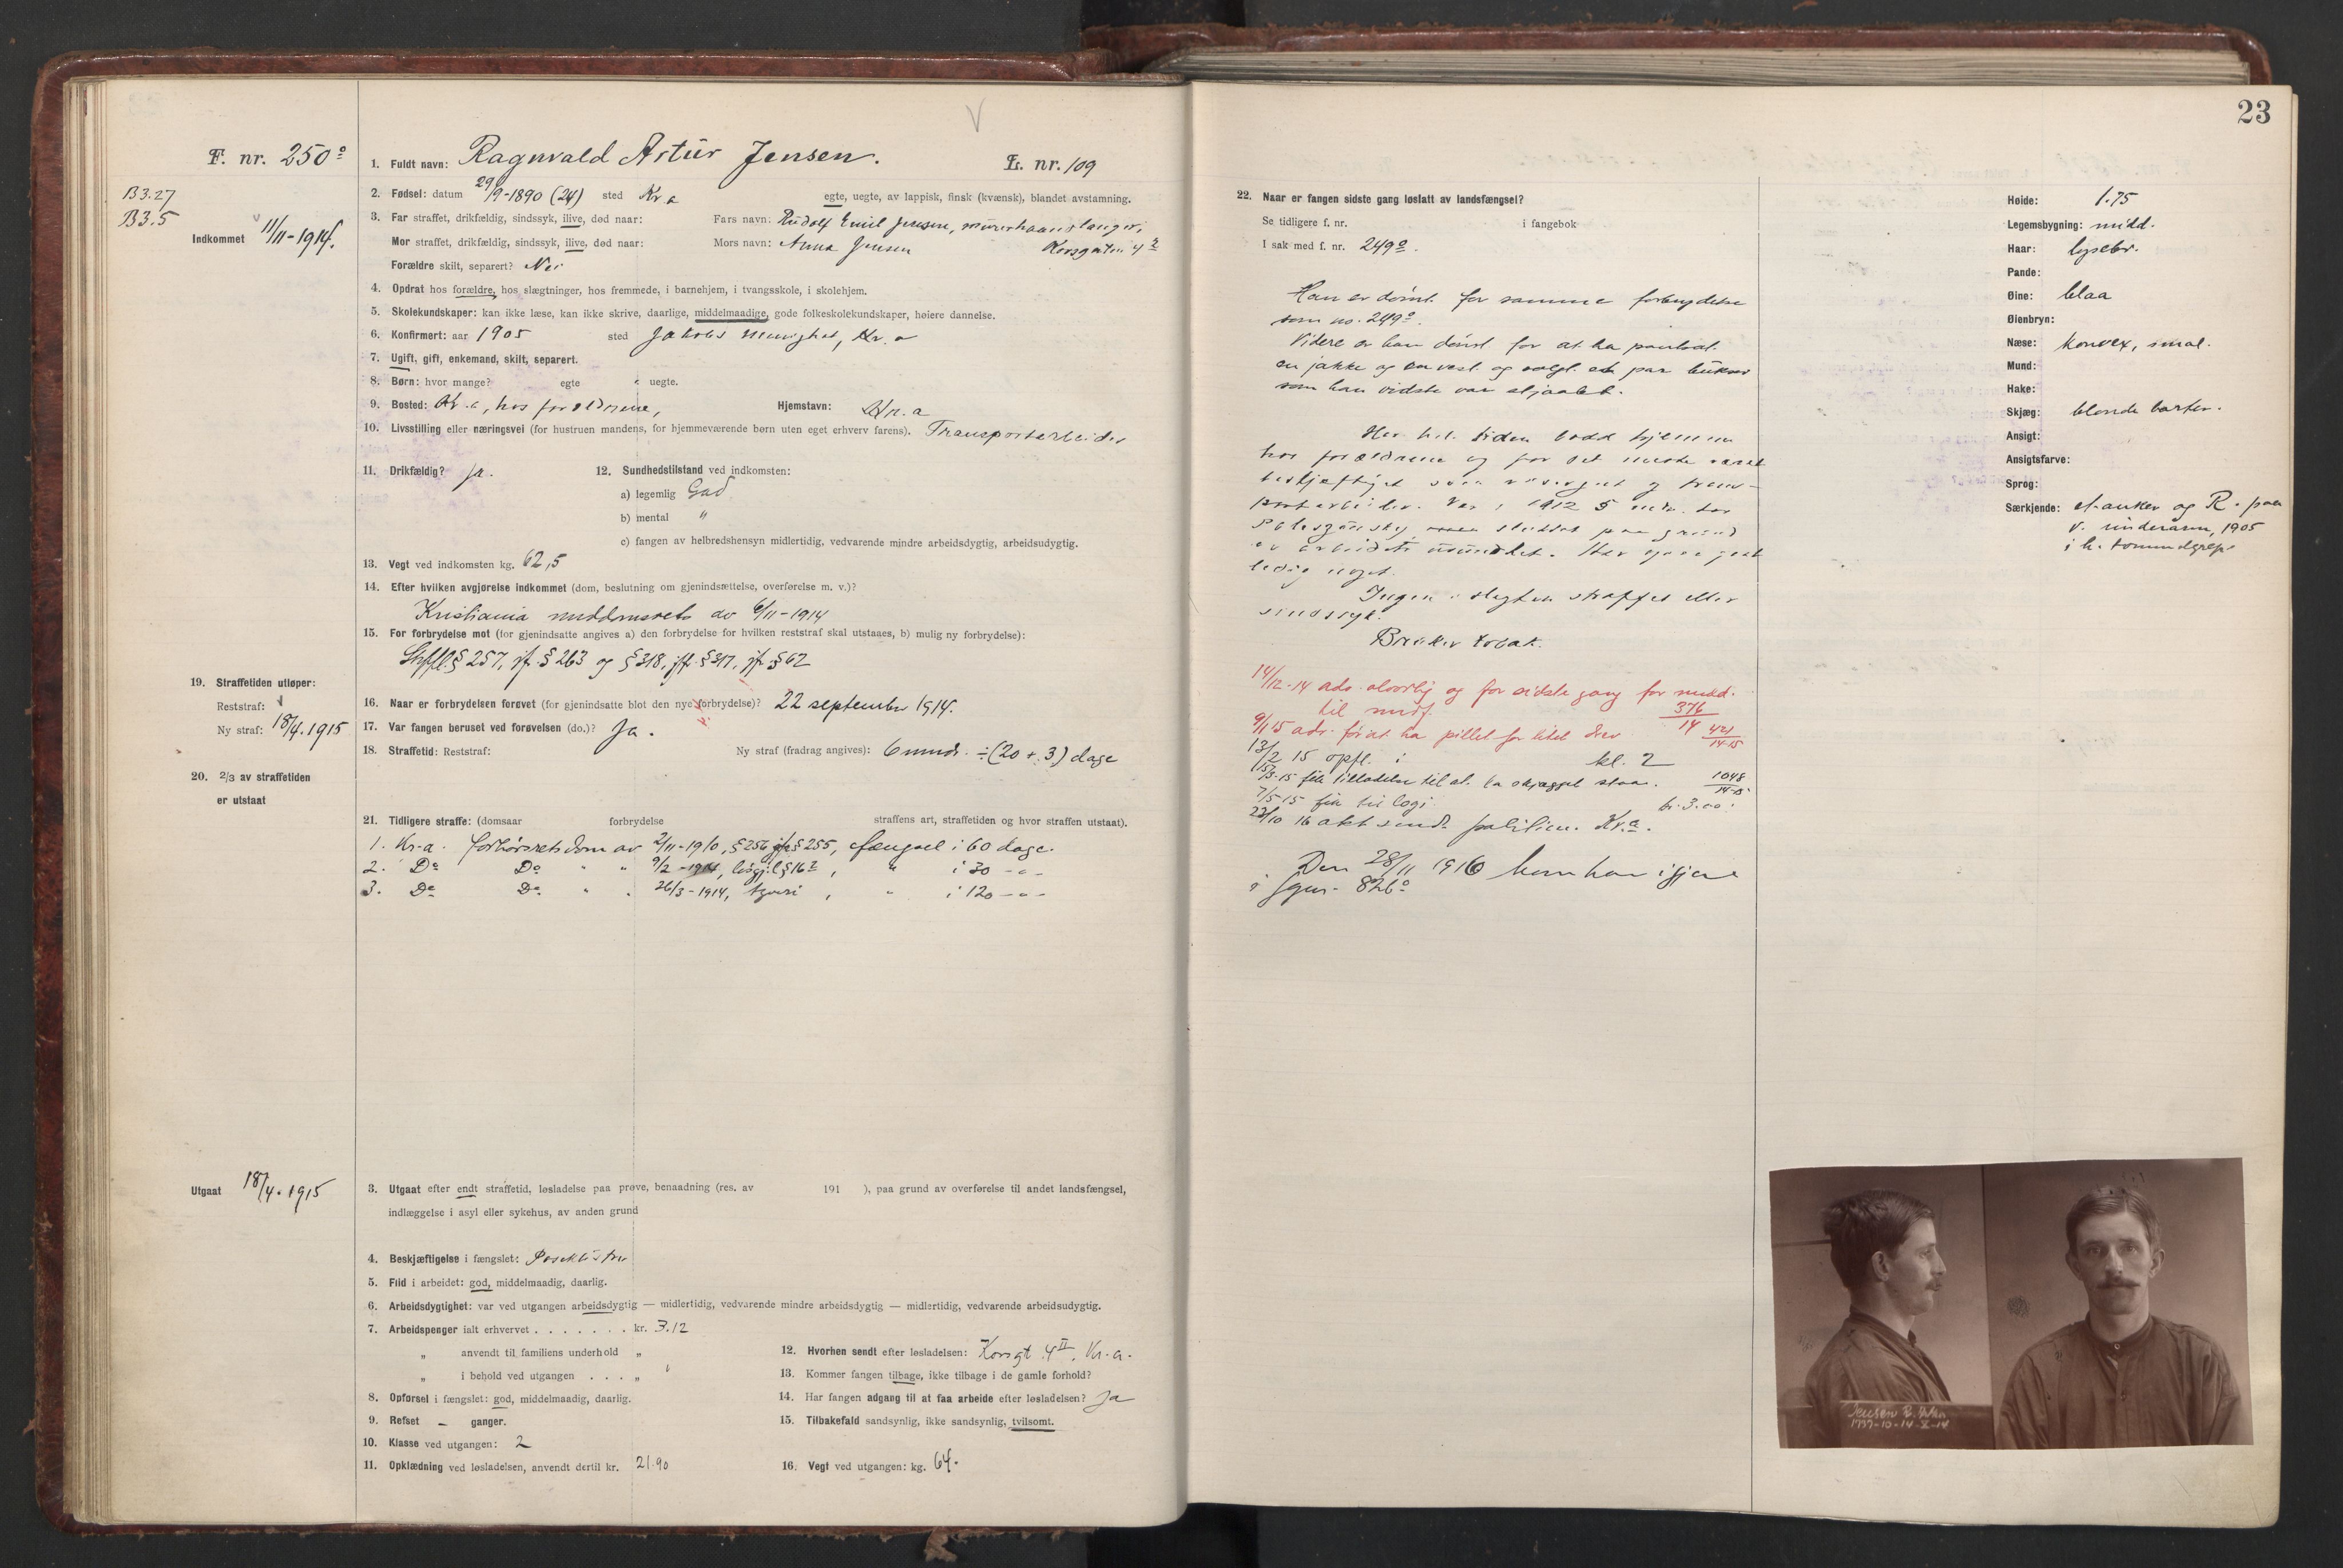 F. nr. 250a
B3.27
B3.5
Indkommet 11/11-1914.
19. Straffetiden utløper:
Reststraf:
Ny straf: 18/4.1915
20. 2/3 av straffetiden
er utstaat
Utgaat 18/4.1915
V
1. Fuldt navn: Ragnvald Artur Jensen. L. nr. 109
2. Fødsel: datum 29/9-1890 (24) sted Kr.a egte, uegte, av lappisk, finsk (kvænsk), blandet avstamning.
3. Far straffet, drikfældig, sindssyk, ilive, død naar: Fars navn: Rudolf Emil Jensen, murerhaandlanger,
Mor straffet, drikfældig, sindssyk, ilive, død naar: Mors navn: Anna Jensen Korsgaten 4
Forældre skilt, separert? Nei
4. Opdrat hos forældre, hos slægtninger, hos fremmede, i barnehjem, i tvangsskole, i skolehjem.
5. Skolekundskaper: kan ikke læse, kan ikke skrive, daarlige, middelmaadige, gode folkeskolekundskaper, høiere dannelse.
6. Konfirmert: aar 1905 sted Jakobs menighet, Kr.a
7. Ugift, gift, enkemand, skilt, separert.
8. Børn: hvor mange? egte " uegte.
9. Bosted: Kr.a, hos forældrene, Hjemstavn: Kr.a
10. Livsstilling eller næringsvei (for hustruen mandens, for hjemmeværende børn uten eget erhverv farens). Transportarbeider
11. Drikfældig? Ja. 12. Sundhedstilstand ved indkomsten:
a) legemlig God
b) mental "
c) fangen av helbredshensyn midlertidig, vedvarende mindre arbeidsdygtig, arbeidsudygtig.
13. Vegt ved indkomsten kg. 62,5
14. Efter hvilken avgjørelse indkommet (dom, beslutning om gjenindsættelse, overførelse m. v.)?
Kristiania meddomsrets av 6/11-1914
15. For forbrydelse mot (for gjenindsatte angives a) den forbrydelse for hvilken reststraf skal utstaaes, b) mulig ny forbrydelse):
Strfl. § 257, jf. § 263 og § 318, jfr. § 317, jf. § 62
16. Naar er forbrydelsen forøvet (for gjenindsatte blot den nye forbrydelse)? 22 september 1914.
17. Var fangen beruset ved forøvelsen (do.)? Ja.
18. Straffetid: Reststraf: Ny straf (fradrag angives): 6 mndr. ÷ (20 + 3) dage
21. Tidligere straffe: (domsaar forbrydelse straffens art, straffetiden og hvor straffen utstaat).
1. Kr.a. forhørsrets dom av 2/11-1910, § 256 jfr § 255, fængsel i 60 dage.
2. Do Do " " 9/2-1914, løsgjl. § 16 , " i 30 -"-
3. Do Do " " 26/3-1914, tyveri , " i 120 -"-
3. Utgaat efter endt straffetid, løsladelse paa prøve, benaadning (res. av 191 ), paa grund av overførelse til andet landsfængsel,
indlæggelse i asyl eller sykehus, av anden grund
4. Beskjæftigelse i fængslet:
5. Flid i arbeidet: god, middelmaadig, daarlig.
6. Arbeidsdygtighet: var ved utgangen arbeidsdygtig — midlertidig, vedvarende mindre arbeidsdygtig — midlertidig, vedvarende arbeidsudygtig.
7. Arbeidspenger ialt erhvervet . . . . . . . kr. 3.12
" anvendt til familiens underhold "
" i behold ved utgangen . . . . "
8. Opførsel i fængslet: god, middelmaadig, daarlig.
9. Refset – ganger.
10. Klasse ved utgangen: 2
11. Opklædning ved løsladelsen, anvendt dertil kr. 21.90
12. Hvorhen sendt efter løsladelsen: Korsgt 4 II, Kr.a.
13. Kommer fangen tilbage, ikke tilbage i de gamle forhold?
14. Har fangen adgang til at faa arbeide efter løsladelsen? Ja
15. Tilbakefald sandsynlig, ikke sandsynlig, tvilsomt.
16. Vegt ved utgangen: kg. 64.
23
22. Naar er fangen sidste gang løslatt av landsfængsel?
Se tidligere f. nr. i fangebok
I sak med f. nr. 249a.
Han er dømt for samme forbrydelse
som no. 249a.
Videre er han dømt for at ha pantsat
en jakke og en vest og solgt et par bukser
som han vidste var stjaalet.
Har hele tiden bodd hjemme
hos forældrene og for det meste været
beskjæftiget som visergut og trans-
portarbeider. Var i 1912 5 mdr. paa
sluttet paa grund
av arbeidets usundhet. Har ogsaa gaat
ledig noget.
Ingen i slegten straffet eller
sindssyk.
Bruker tobak.
14/12-14 adv. alvorlig og for sidste gang for medd.
til medf. 376/14
9/1 15 adv. for at ha pillet for litet drev 421/14-15
13/2 15 opfl. i kl. 2
15/3-15 fik tilladelse til at la skjegget staa. 1048/14-15
7/5 15 fik til logi kr. 3.00
23/10 16 akt sendt politiet. Kr.a.
Den 28/11 1916 kom han igjen
i fgnr. 826a
Høide: 1.75
Legemsbygning: midd.
Haar: lysebr.
Pande:
Øine: blaa
Øienbryn:
Næse: konvex, smal.
Mund:
Hake:
Skjæg: blonde barter.
Ansigt:
Ansigtsfarve:
Sprog:
Særkjende: et anker og R. paa
v. underarm, 1905
i h. tommelgrep
Jensen R. Artur
1737-10-14-X-14